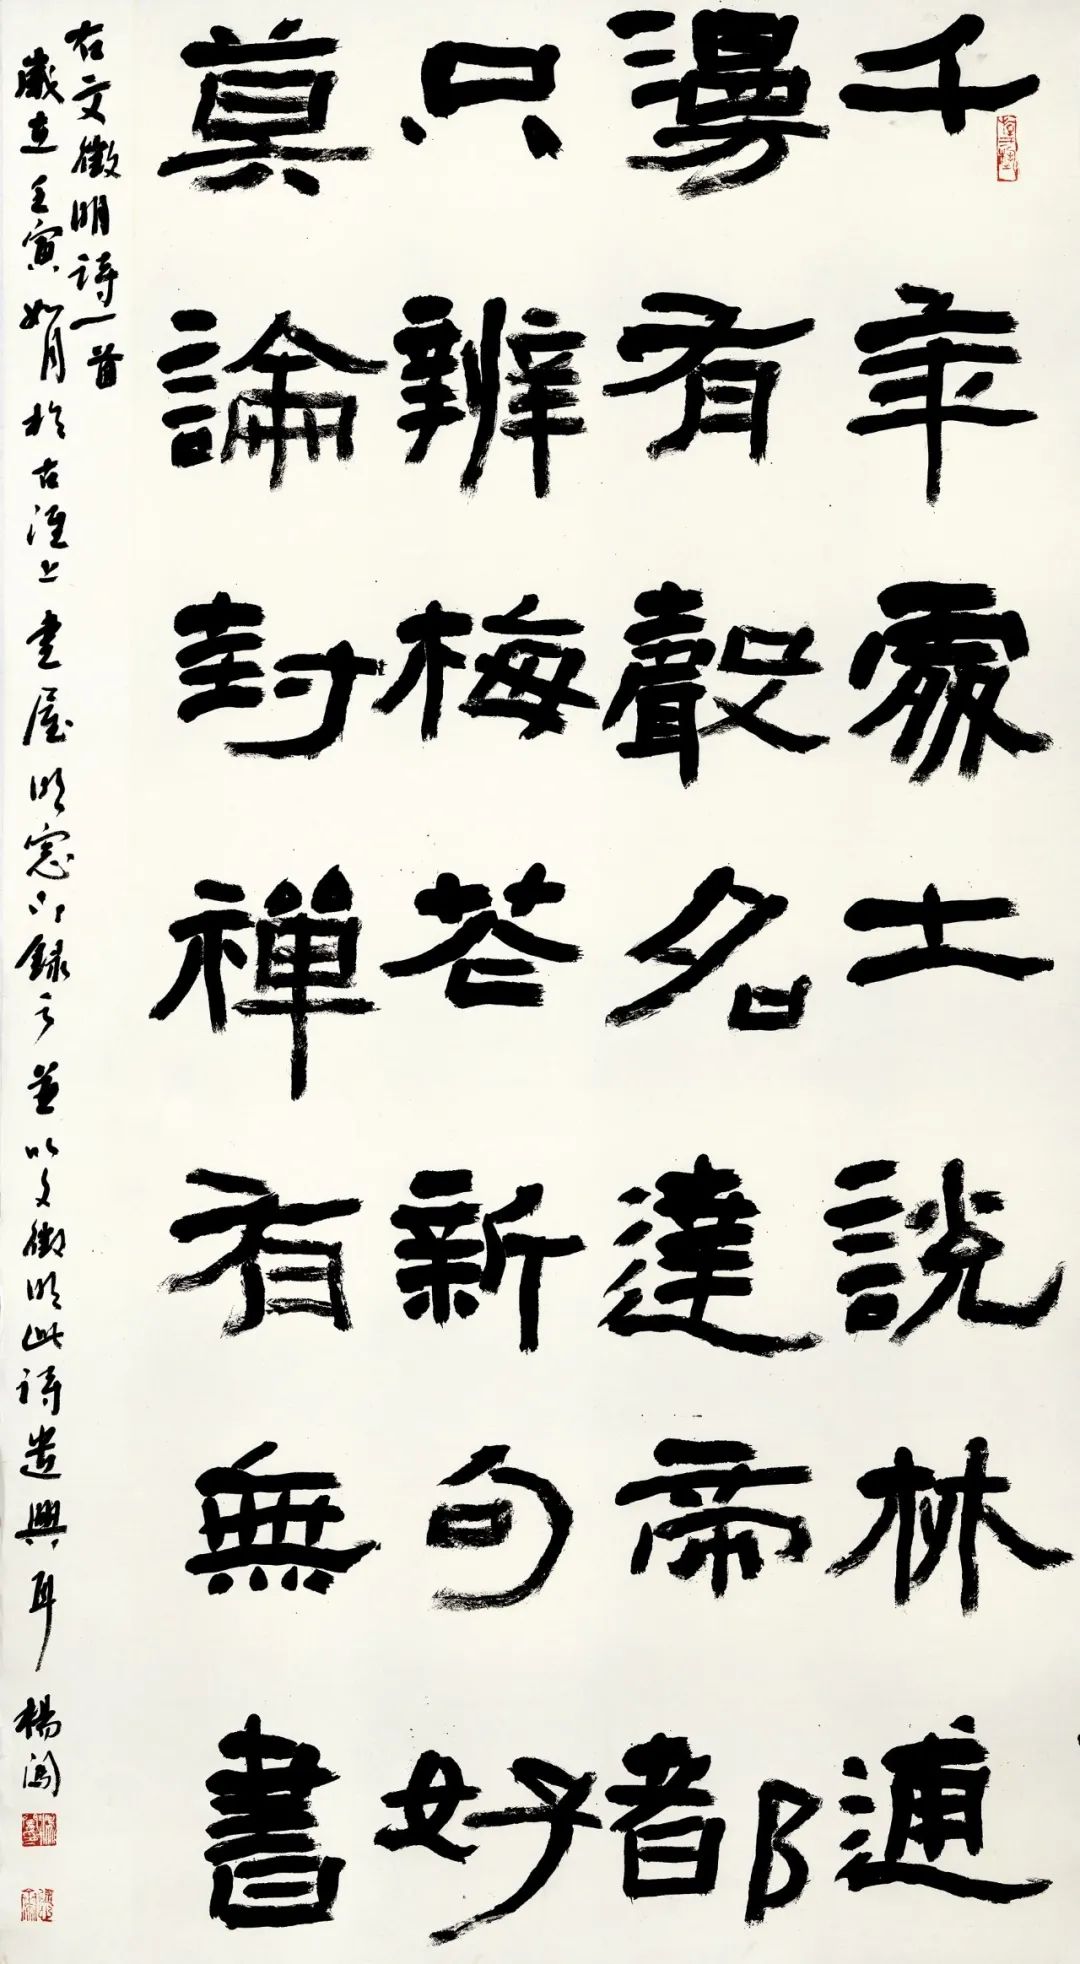 千年處士説林逋
漫有聲名達帝都
只辨梅花新句好
莫論封禪有無書
右文徵明詩一首
歲在壬寅如月於古淮上書屋明窗下錄之並以文徵明此詩遣興耳 楊闊